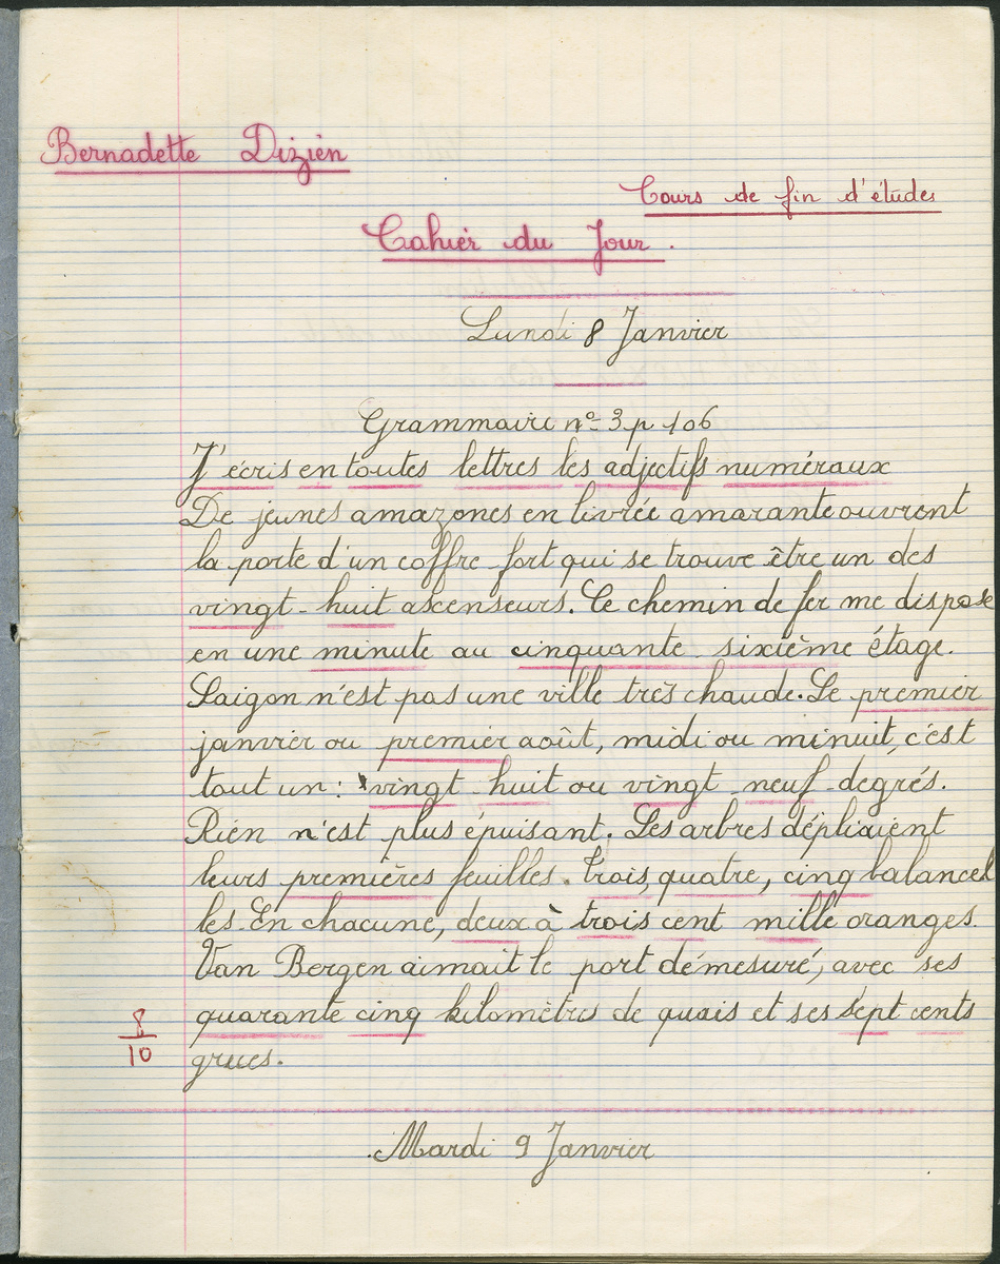 Bernadette Dizien
Cours de fin d'études
Cahier du Jour.
Lundi 8 Janvier
Grammaire nº 3 p 106
J'écris en toutes lettres les adjectifs numéraux
De jeunes amazones en livrée amarante ouvrent
la porte d'un coffre-fort qui se trouve être un des
vingt-huit ascenseurs. Ce chemin de fer me dispose
en une minute au cinquante-sixième étage.
Saïgon n'est pas une ville très chaude. Le premier
janvier ou premier août, midi ou minuit, c'est
tout un : vingt-huit ou vingt-neuf-degrés.
Rien n'est plus épuisant. Les arbres dépliaient
leurs premières feuilles. Trois, quatre, cinq balancel
les. En chacune, deux à trois cent mille oranges.
Van Bergen aimait le port démesuré, avec ses
quarante cinq kilomètres de quais et ses sept cents
grues.
8/10
Mardi 9 Janvier